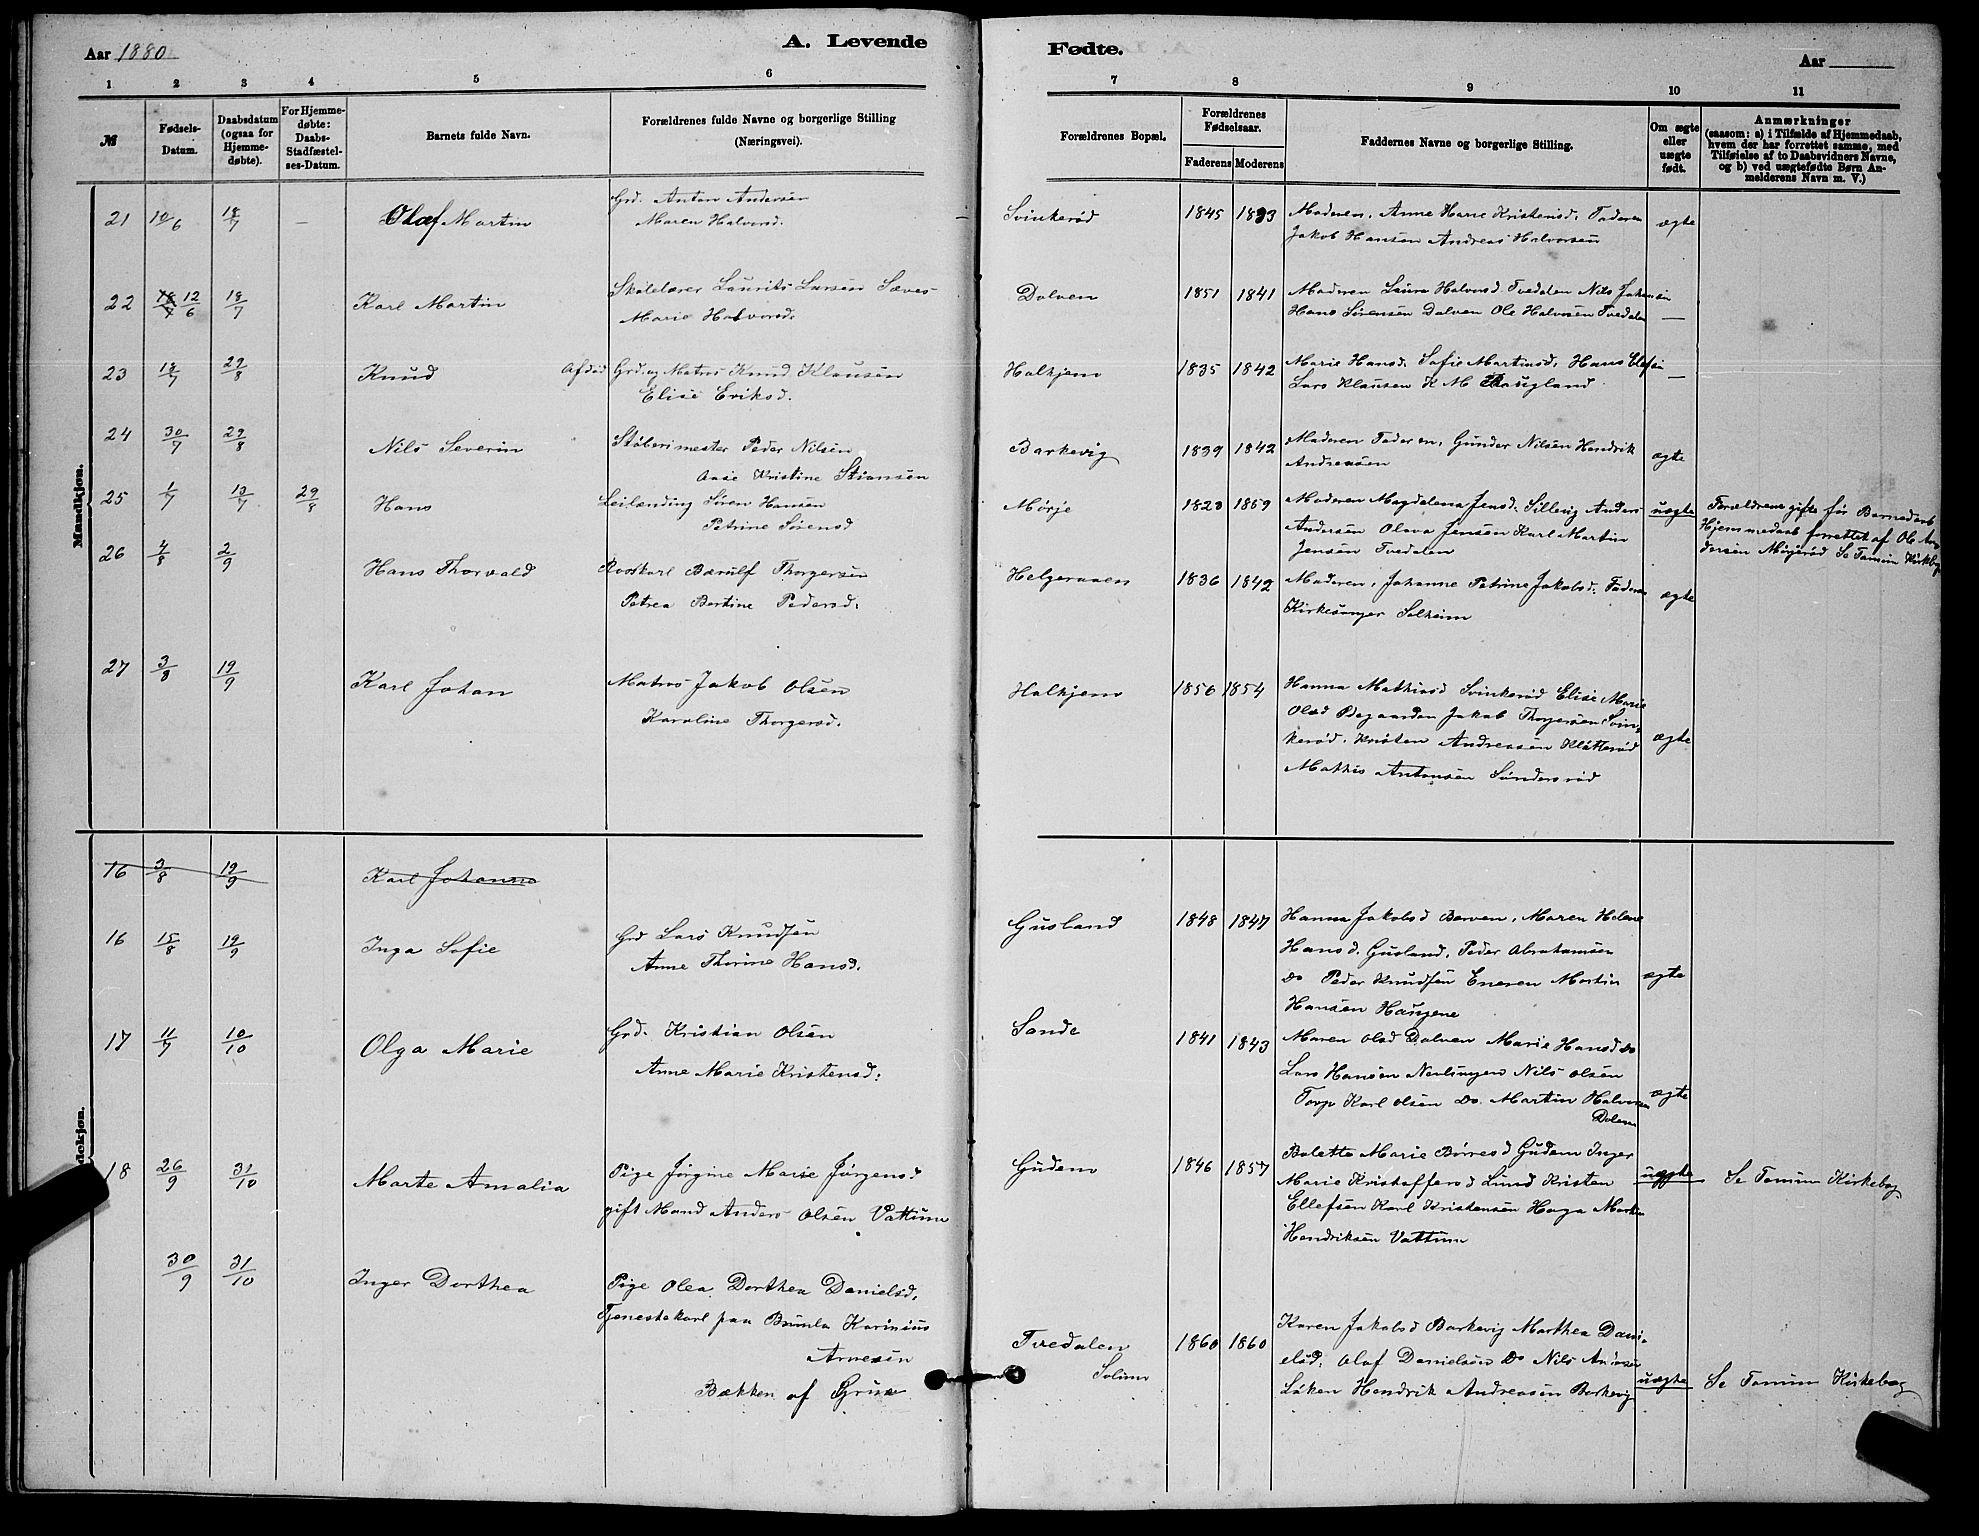 Aar 1880
A. Levende
Fødte.
Aar
1 2 3 4 5 6 7 8 9 10 11
№
Fødsels-Datum.
Daabsdatum (ogsaa for Hjemme-døbte).
For Hjemme-døbte: Daabs-Stadfæstel-ses-Datum.
Barnets fulde Navn.
Forældrenes fulde Navne og borgerlige Stilling
(Næringsvei).
Forældrenes Bopæl.
Forældrenes Fødselsaar.
Faderens Moderens
Faddernes Navne og borgerlige Stilling.
Om ægte eller uægte født.
Anmærkninger
(saasom: a) i Tilfælde af Hjemmedaab,
hvem der har forrettet samme, med
Tilføielse af to Daabsvidners Navne,
og b) ved uægtefødte Børn An-
melderens Navn m. V.)
Mandkjøn.
21 10/6 18/7 — Olaf Martin Grd. Anton Andersen
Maren Halvorsd.
Svinkerød 1845 1833 Moderen, Anne Marie Kristensd. Faderen
Jakob Hansen Andreas Halvorsen
ægte
22 18/7 12/6 18/7 Karl Martin Skolelærer Laurits Larsen Sæves
Marie Halvorsd.
Dolven 1851 1841 Moderen Laura Halvorsd Tvedalen Nils Johansen
Hans Sørensen Dolven Ole Halvorsen Tvedalen
—
23 18/7 29/8 Knud Afdød Grd. og Matros Knud Klausen
Elise Eriksd.
Halkjem 1835 1842 Marie Hansd. Sofie Martinsd. Hans Olesen
Lars Klausen K M Baugland
—
24 30/7 29/8 Nils Severin Støberimester Peder Nilsen
Aase Kristine Stiansen
Barkevig 1839 1842 Moderen Faderen, Gunder Nilsen Hendrik
Andreasen
ægte
25 1/7 13/7 29/8 Hans Leilending Søren Hansen
Petrine Sørensd
Mørje 1823 1859 Moderen Magdalena Jensd. Sillevig Anders
Andersen Olava Jensen Karl Martin
Jensen Tvedalen
uægte
Forældrene gifte før Barnedaab
Hjemmedaab forrettet af Ole An-
dersen Mørjerød Se Tanum Kirkebog
26 4/8 2/9 Hans Thorvald Roerkarl Børulf Thorgersen
Petrea Bertine Pedersd.
Helgeroaen 1836 1842 Moderen, Johanne Petrine Jakobsd. Faderen
Kirkesanger Solheim
ægte
27 3/8 19/9 Karl Johan Matros Jakob Olsen
Karoline Thorgersd.
Halkjem 1856 1854 Hanna Mathisd Svinkerød Elise Marie
Olsd Ødegaarden Jakob Thorgersen Svin-
kerød. Kristen Andreasen Klåtterød
Mathis Antonsen Søndersrød
ægte
16 3/8 19/9 Karl Johanne
16 15/8 19/9 Inga Sofie Grd Lars Knudsen
Anne Thorine Hansd.
Gusland 1848 1847 Hanna Jakobsd Berven, Maren Helene
Hansd. Gusland, Peder Abrahamsen
Do Peder Knudsen Eneren Martin
Hansen Haugene
ægte
17 11/7 10/10 Olga Marie Grd. Kristian Olsen
Anne Marie Kristensd.
Sande 1841 1843 Maren Olsd Dolven Marie Hansd Do
Lars Hansen Nevlungen Nils Olsen
Torp Karl Olsen Do. Martin Halvorsen
Dolven
ægte
dekjøn.
18 26/9 31/10 Marte Amalia Pige Jørgine Marie Jørgensd
gift Mand Anders Olsen Vattum
Gudem 1846 1857 Bolette Marie Børresd Gudem Inger
Marie Kristoffersd Lund Kristen
Ellefsen Karl Kristensen Haga Martin
Hendriksen Vattum
uægte
Se Tanum Kirkebog
30/9 31/10 Inger Dorthea Pige Olea Dorthea Danielsd,
Tjenestekarl paa Brunla Karinius
Arnesen
Bækken af Grise
Tvedalen
Solum
1860 1860 Karen Jakobsd Barkevig Marthea Dani-
elsd. Olaf Danielsen Do Nils
Løken Hendrik Andreasen Barkevig
uægte
Se Tanum Kirkebog